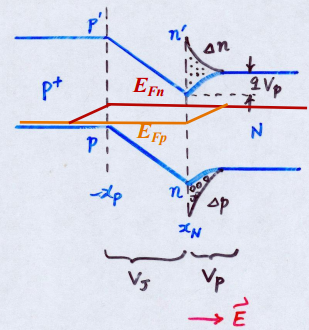 p' n' Δn
qVp
p+ EFn
EFp N
p n Δp
-xp xN
VJ Vp
→ E